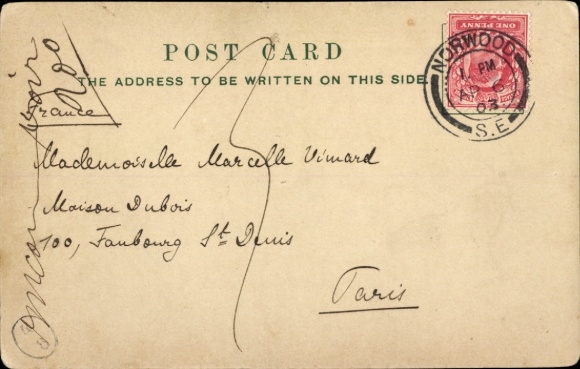 POST CARD
THE ADDRESS TO BE WRITTEN ON THIS SIDE.
France
Mademoiselle Marcelle Vimard
Maison Dubois
100, Faubourg St Denis
Paris
ONE PENNY
NORWOOD
1 PM
AP 6
03
S.E